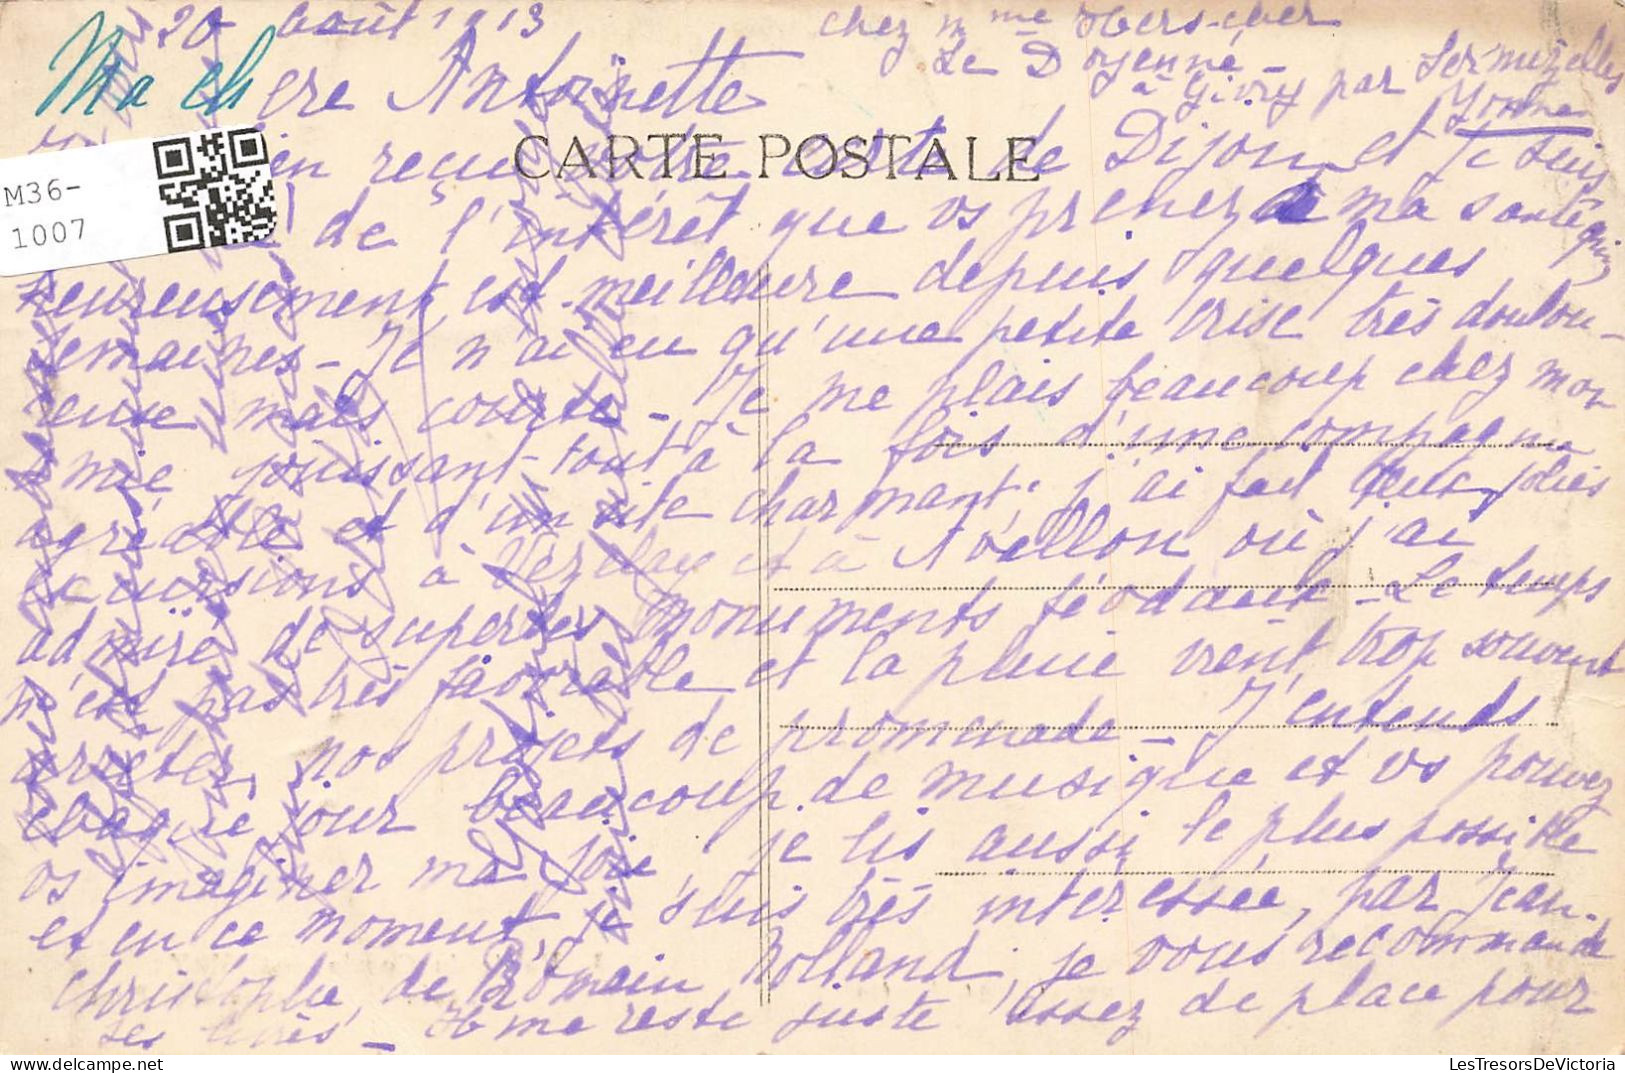 20 août 1913
chez Mme
Le Doyenné
à Givry par Sermizelles
Yonne
Ma chère Antoinette
CARTE POSTALE
M36-
1007
bien reçu votre carte de Dijon et je suis
de l'intérêt que vs prenez à ma santé qui
heureusement est meilleure depuis quelques
semaines - Je n'ai eu qu'une petite crise très doulou-
reuse mais courte - Je me plais beaucoup chez mon
amie jouissant tout à la fois d'une compagne
agréable et d'un site charmant; j'ai fait deux jolies
excursions à Vézelay et à Avallon où j'ai
admiré de superbes monuments féodaux - Le temps
n'est pas très favorable et la pluie vient trop souvent
arrêter nos projets de promenade - J'entends
chaque jour beaucoup de musique et vs pouvez
vs imaginer ma joie, je lis aussi le plus possible
et en ce moment, je suis très intéressée, par Jean-
Christophe de Romain Rolland, je vous recommande
ses livres - Il me reste juste assez de place pour
LesTresorsDeVictoria.com